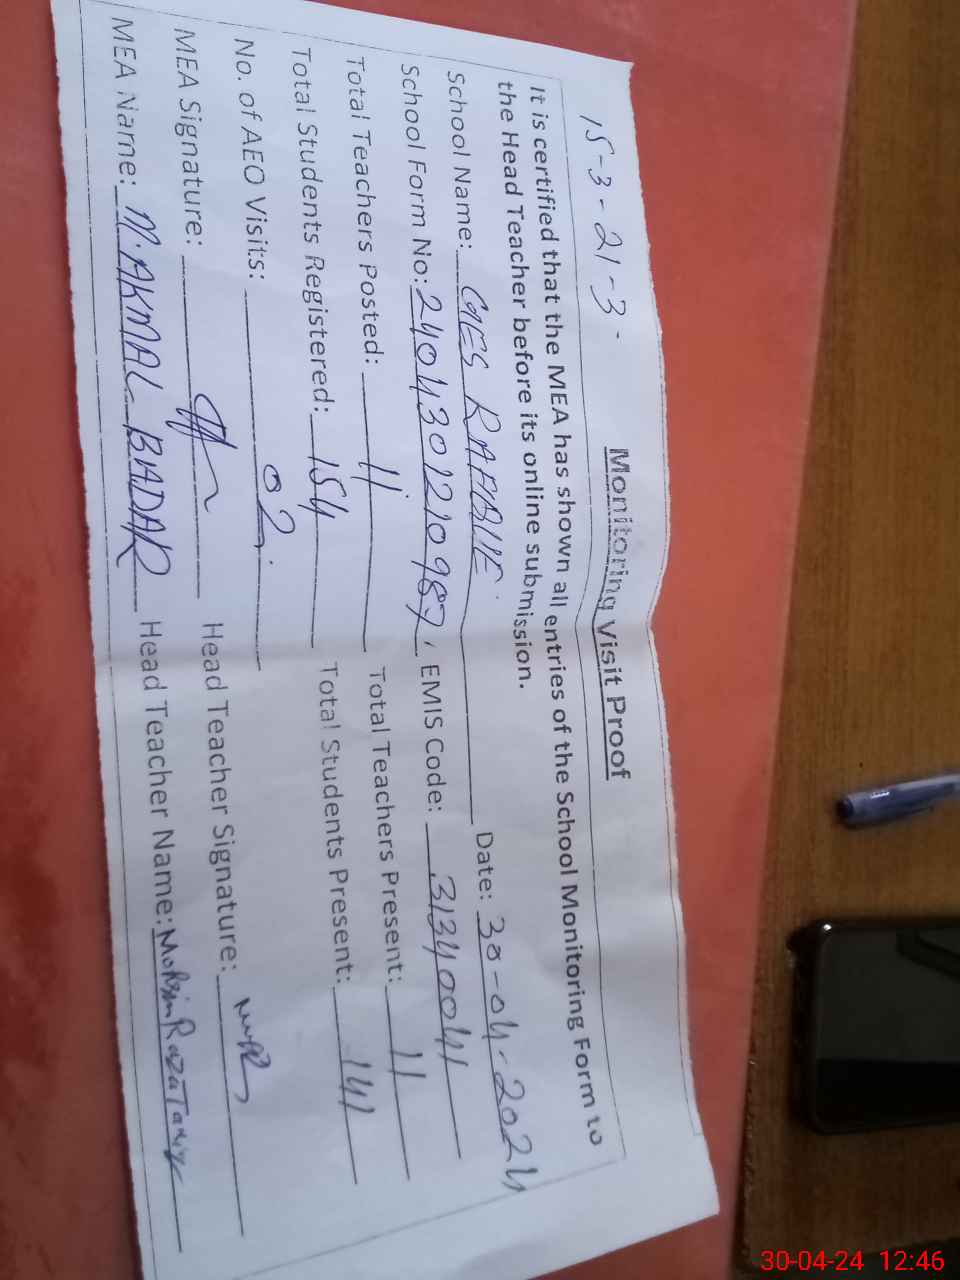 Monitoring Visit Proof
15-3-21-3-
It is certified that the MEA has shown all entries of the School Monitoring Form to
the Head Teacher before its online submission.
School Name: GES RAFIQUE Date: 30-04-2024
School Form No: 2404301210987 EMIS Code: 31340041
Total Teachers Posted: 11 Total Teachers Present: 11
Total Students Registered: 154 Total Students Present: 141
No. of AEO Visits: 02
MEA Signature: Head Teacher Signature:
MEA Name: M. AKMAL BADAR Head Teacher Name: Mohsin Raza
30-04-24 12:46